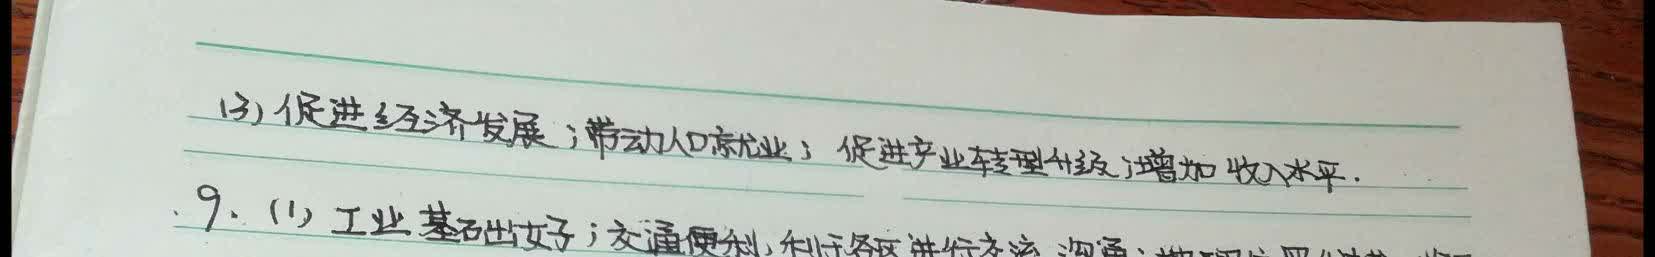 (3)促进经济发展；带动人口就业；促进产业转型升级；增加收入水平.
9.(1)工业基础好；交通便利,利于各区进行交流沟通；